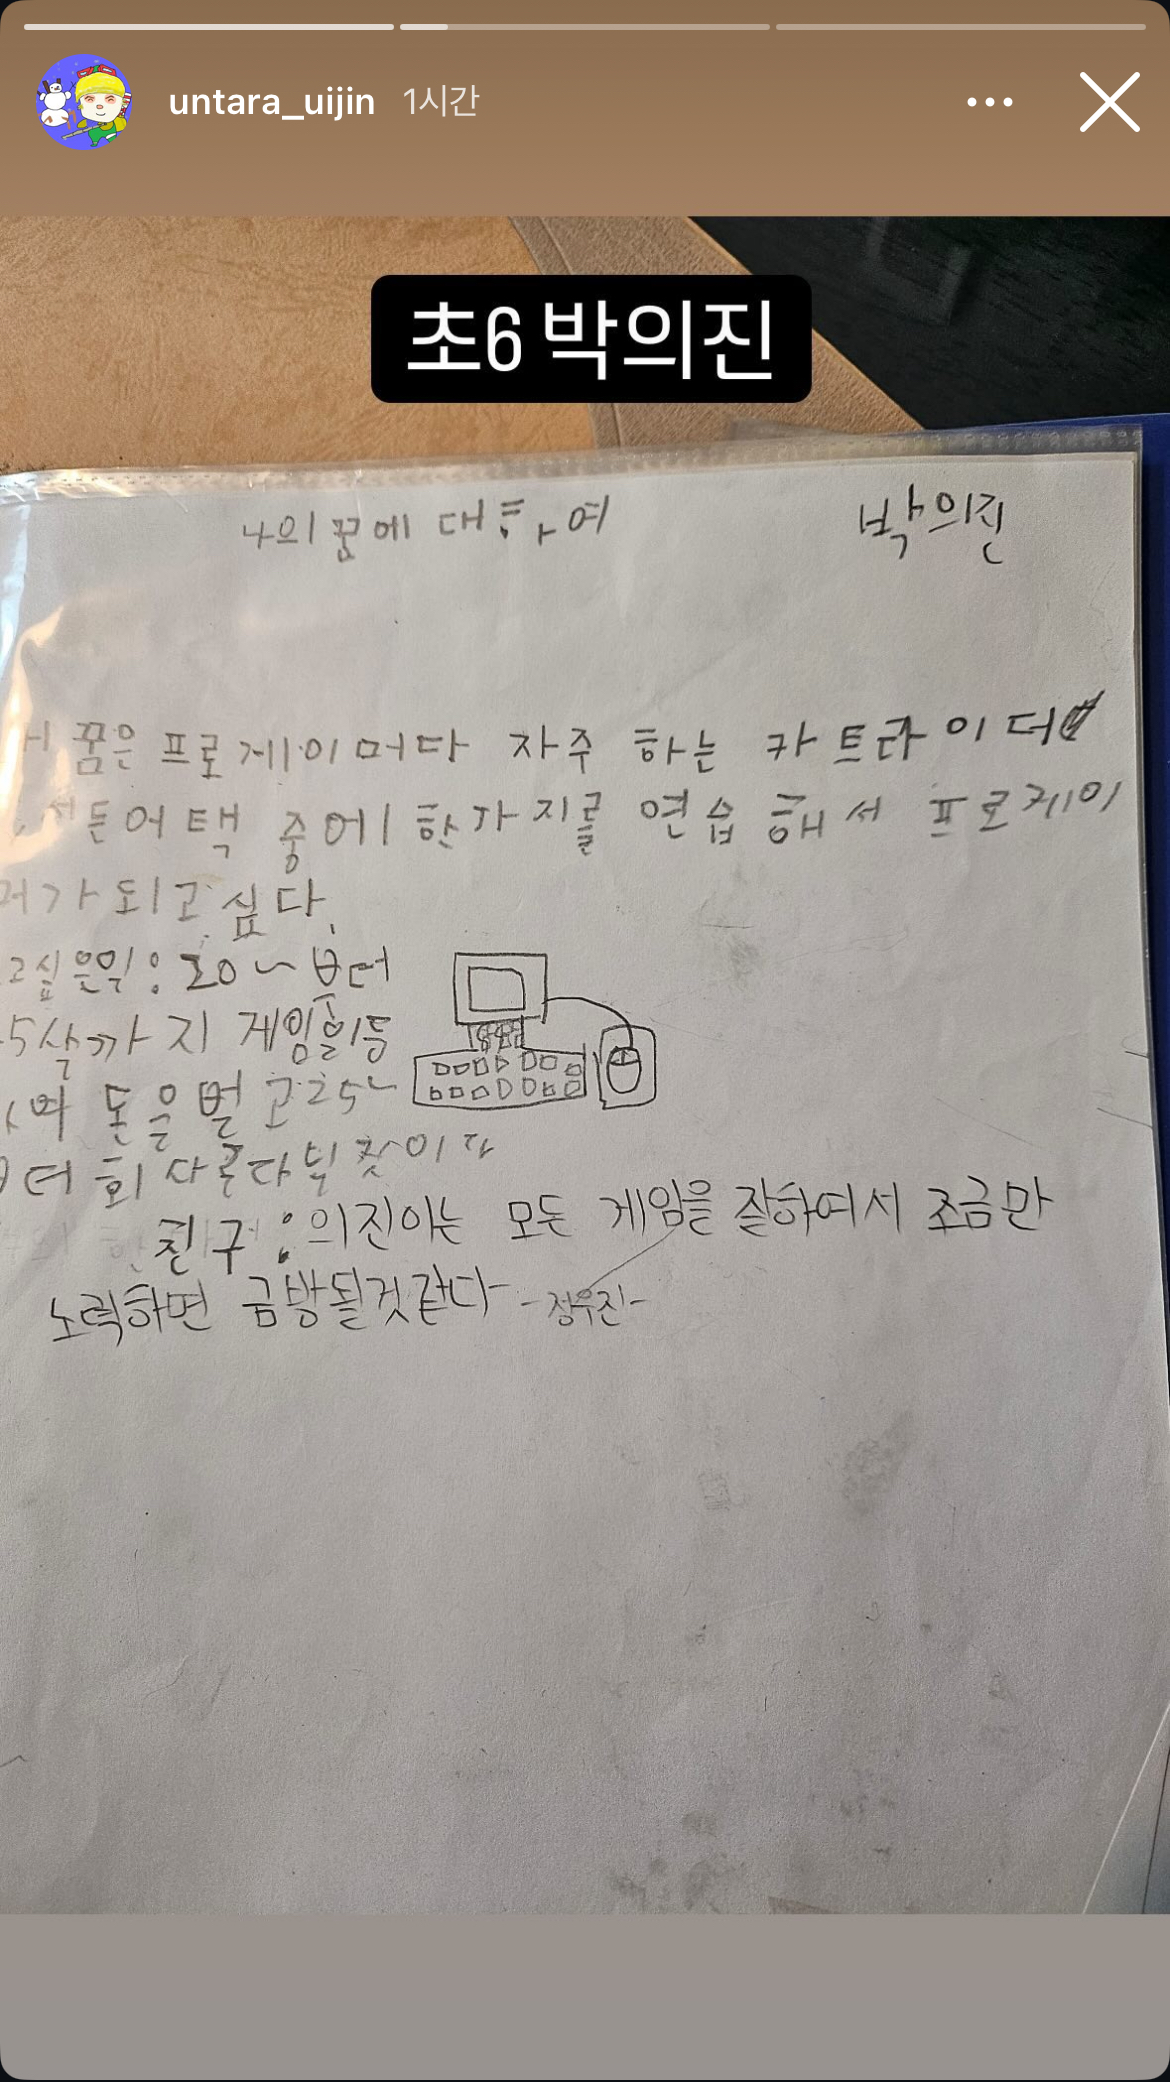 untara_uijin 1시간
초6 박의진
나의 꿈에 대하여 박의진
꿈은 프로게이머다 자주 하는 카트라이더
서든어택 중에 한가지를 연습해서 프로게이
머가 되고 싶다.
고싶은일: 20~부터
5살까지 게임
돈을 벌고 25~
부터 회사를 다닐 것이다
친구: 의진이는 모든 게임을 잘하여서 조금만
노력하면 금방될것같다 -정우진-